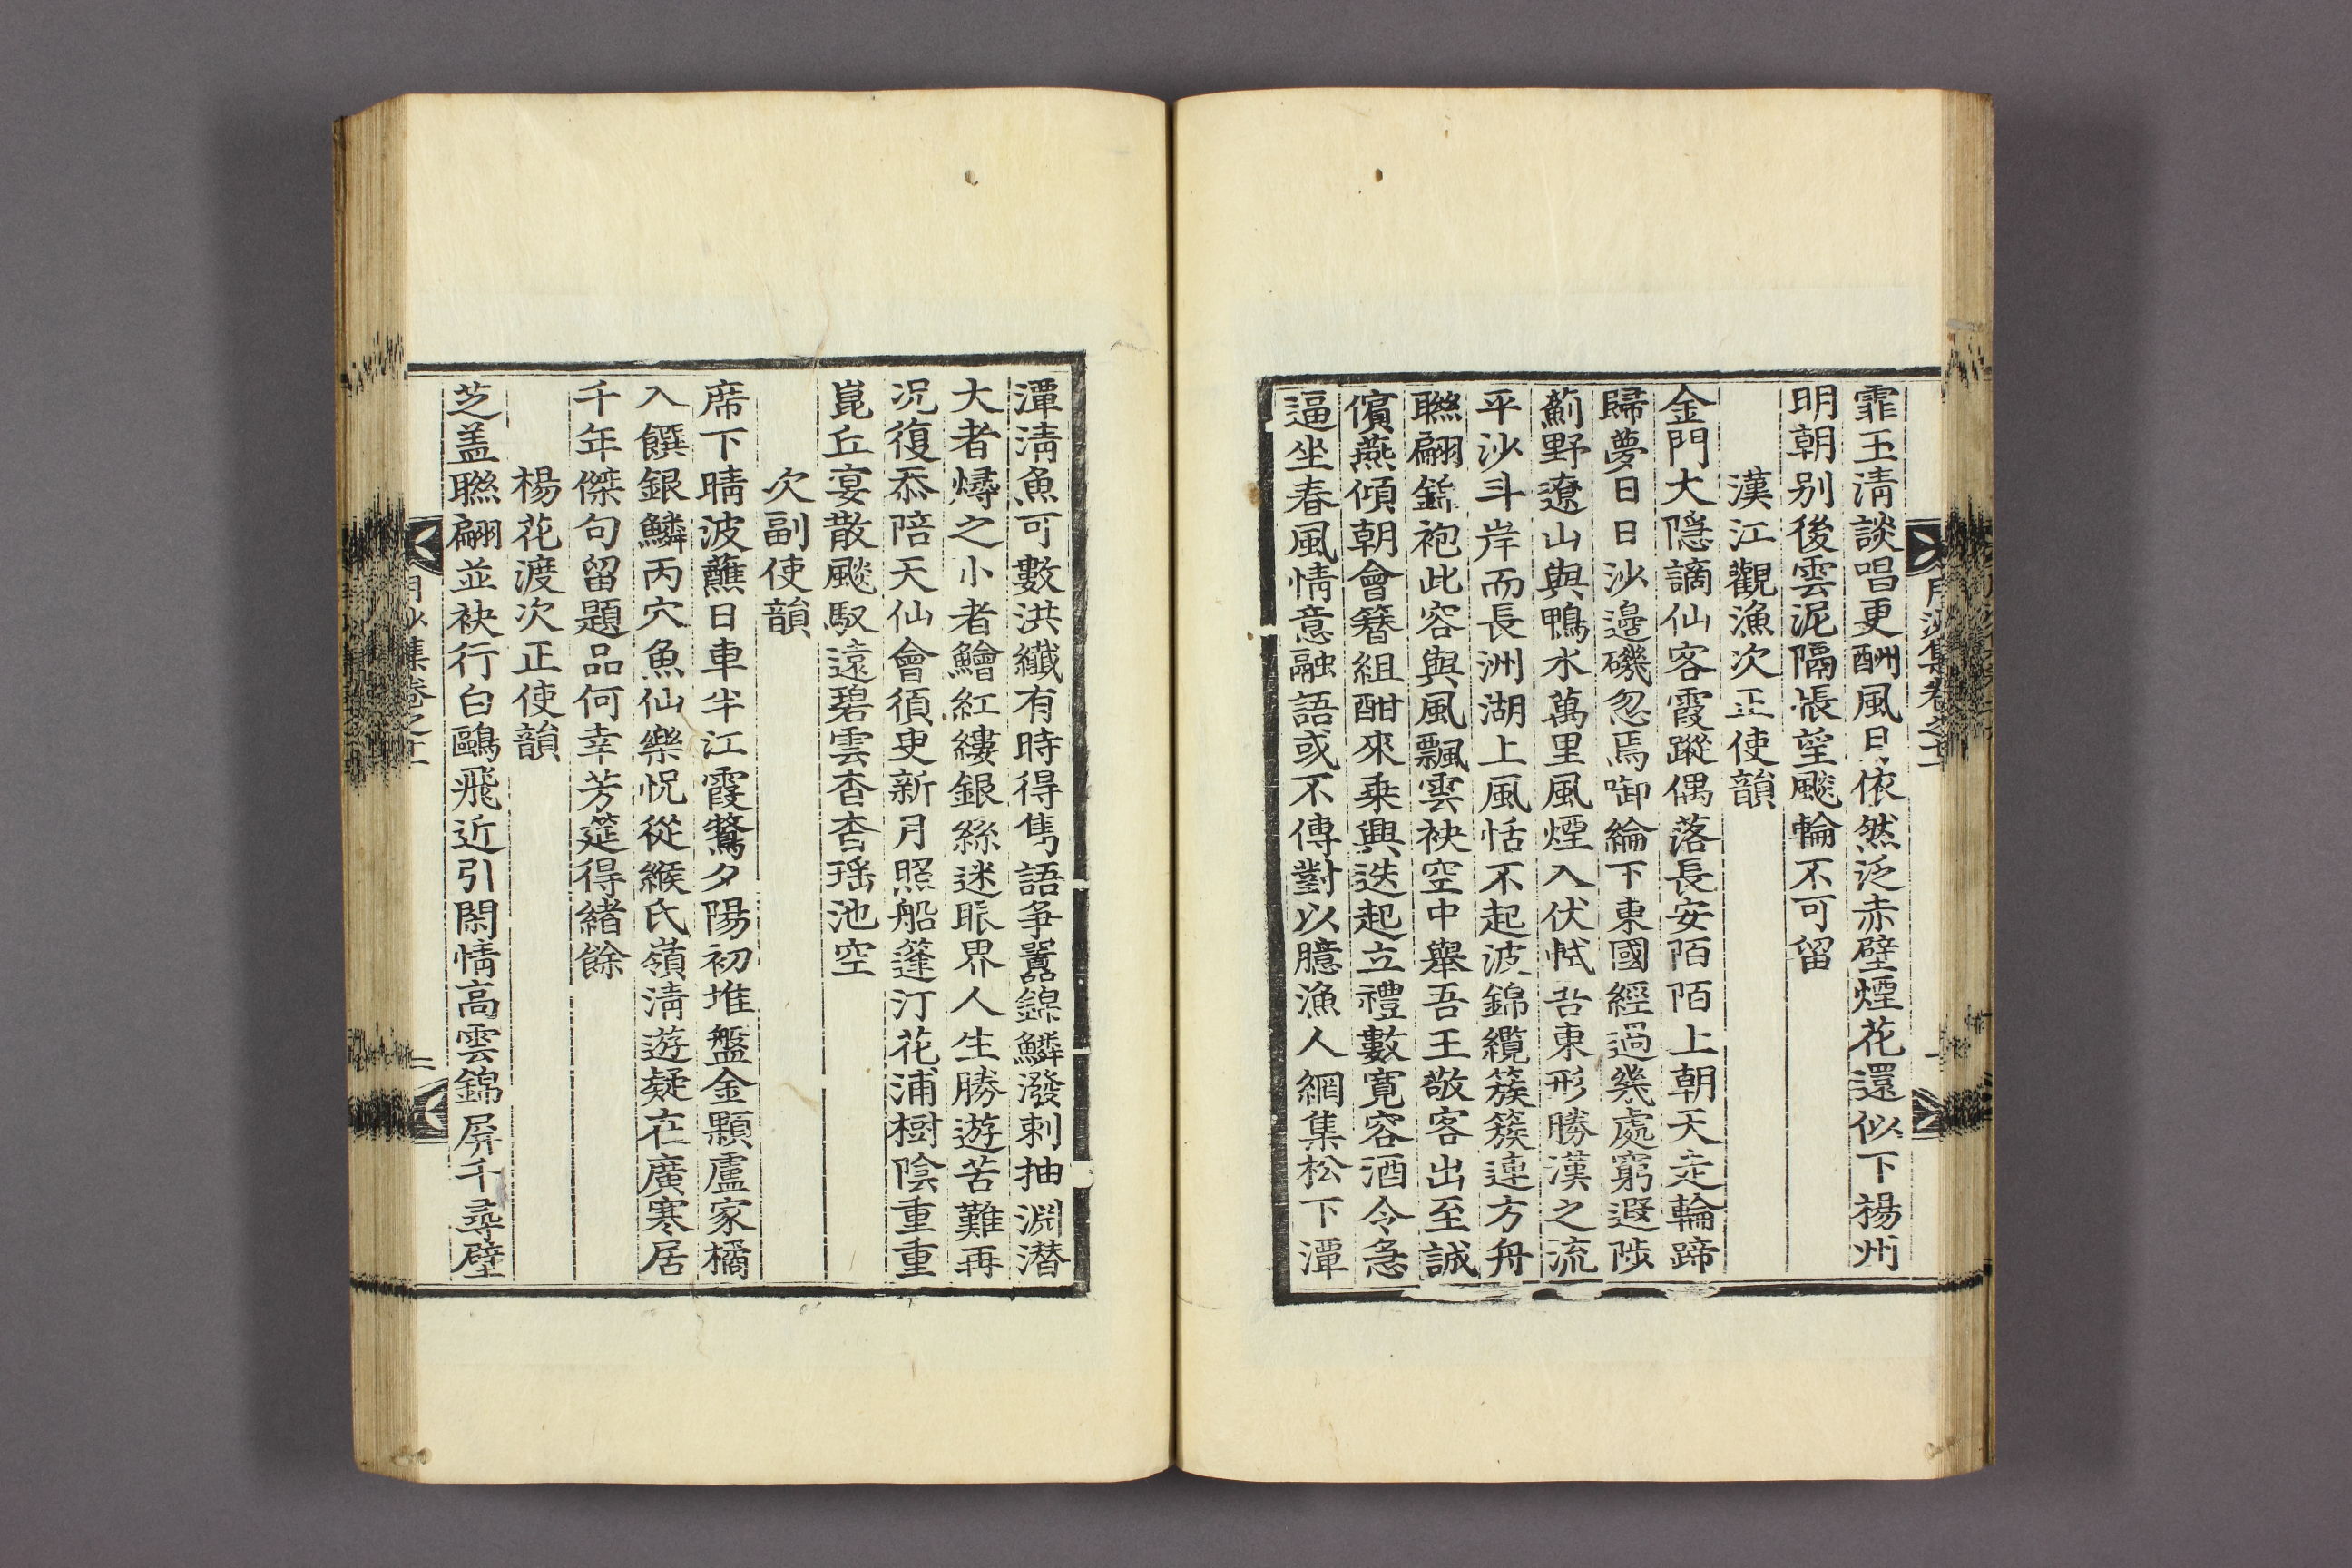 霏玉清談唱更酬風日依然泛赤壁煙花還似下楊州
明朝别後雲泥隔悵望飈輪不可留
漢江觀漁次正使韻
金門大隱謫仙客霞蹤偶落長安陌陌上朝天走輪蹄
歸夢日日沙邊磯忽焉啣綸下東國經過幾處窮遐陟
薊野遼山與鴨水萬里風煙入伏軾吾東形勝漢之流
平沙斗岸而長洲湖上風恬不起波錦纜簇簇連方舟
聮翩錦袍此容與風飄雲袂空中舉吾王敬客出至誠
儐燕傾朝會簪組酣來乘興迭起立禮數寬容酒令急
逼坐春風情意融語或不傳對以臆漁人網集松下潭
潭淸魚可數洪纖有時得雋語爭囂錦鱗潑剌抽淵潜
大者燖之小者鱠紅縷銀絲迷眼界人生勝遊苦難再
况復忝陪天仙會須臾新月照船篷汀花浦樹陰重重
崑丘宴散飈馭遠碧雲杳杳瑤池空
次副使韻
席下晴波蘸日車半江霞鶩夕陽初堆盤金顆盧家橘
入饌銀鱗丙穴魚仙樂怳從緱氏嶺淸遊疑在廣寒居
千年傑句留題品何幸芳筵得緖餘
楊花渡次正使韻
芝盖聮翩並袂行白鷗飛近引閑情高雲錦屏千尋壁
月沙集卷之十